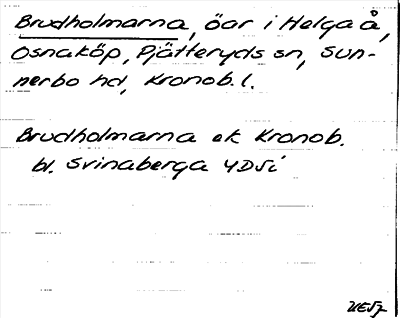 Brudholmarna, öar i Helga å,
Osnaköp, Pjätteryds sn, Sun-
nerbo hd, Kronob. l.
Brudholmarna ek Kronob.
bl. Svinaberga 4D5i